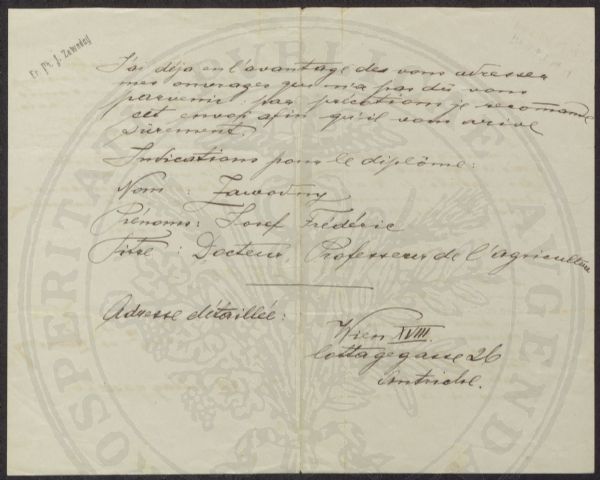 Dr. Fr. J. Zawodny
J'ai déja eu l'avantage des vous adresser
mes ouvrages qui m'a pas dû vous
parvenir: par précautions je recomande
cet envoi afin qu'il vous arive
sûrement.
Indications pour le diplôme:
Nom : Zawodny
Prénoms: Josef Frédéric
Titre : Docteur, Professeur de l'agriculture
Adresse détaillée:
Wien XVIII.
Cottagegasse 26
Autriche.
PROSPERITATI PUBLICAE AUGENDAE